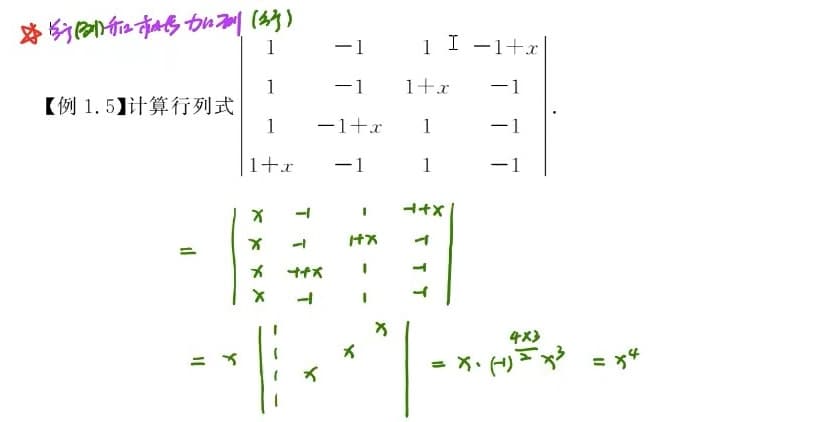 ☆ 行(列)和相等 加到 (行)
【例 1.5】计算行列式
1 −1 1 −1+x
1 −1 1+x −1
1 −1+x 1 −1
1+x −1 1 −1 .
= x -1 1 -1+x
x -1 1+x -1
x -1+x 1 -1
x -1 1 -1
= x 1 x
1 x
1 x
1
= x·(-1)^{4×3/2} x³ = x⁴